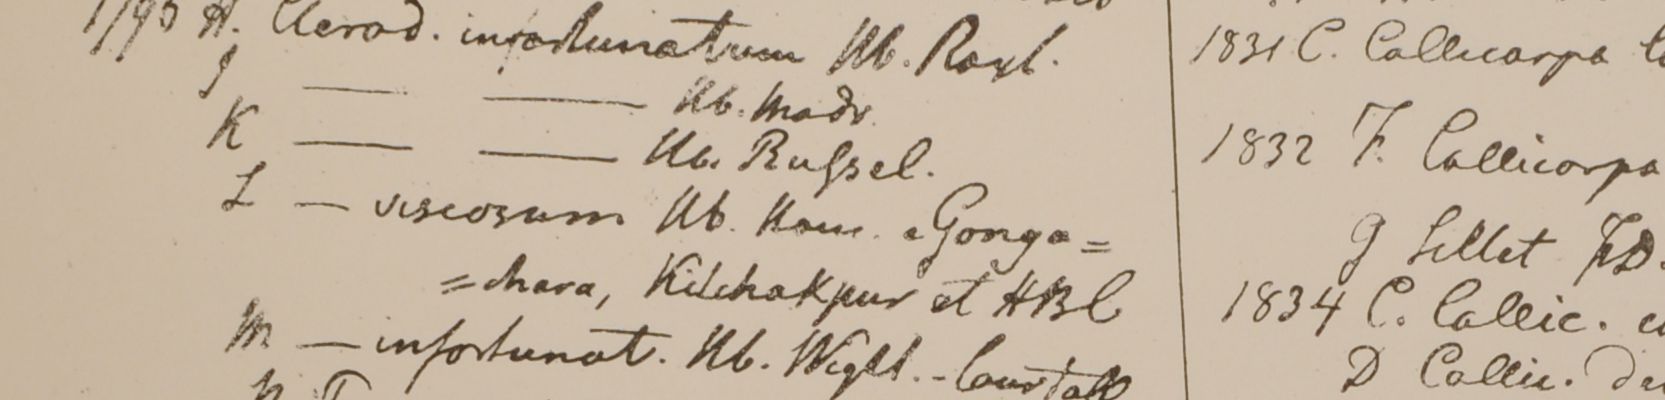 H. Clerod. infortunatum Hb. Roxl.
J — — Hb. Madr.
K — — Hb. Russel.
L — viscosum Hb. Ham. e Gonga=
=chara, Kilchakpur et HBC
M — infortunat. Hb. Wight. -
1831 C. Callicarpa
1832 F. Callicarpa
G Sillet FD.
1834 C. Callic.
D Callic.